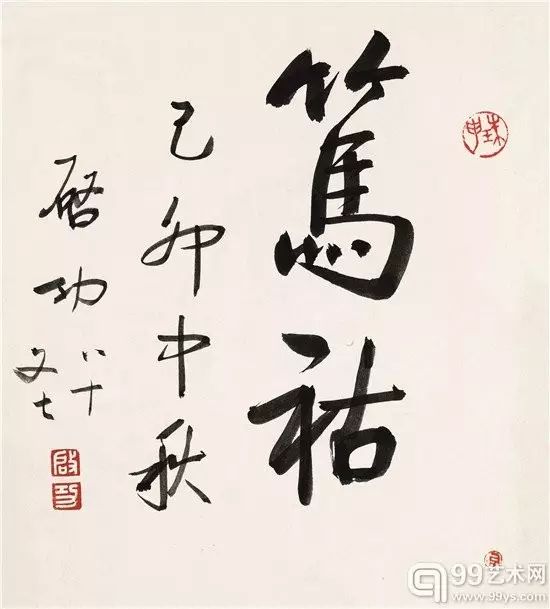 篤祜
己卯中秋
啓功
八十
又七
珠申
啟功
99艺术网
www.99ys.com